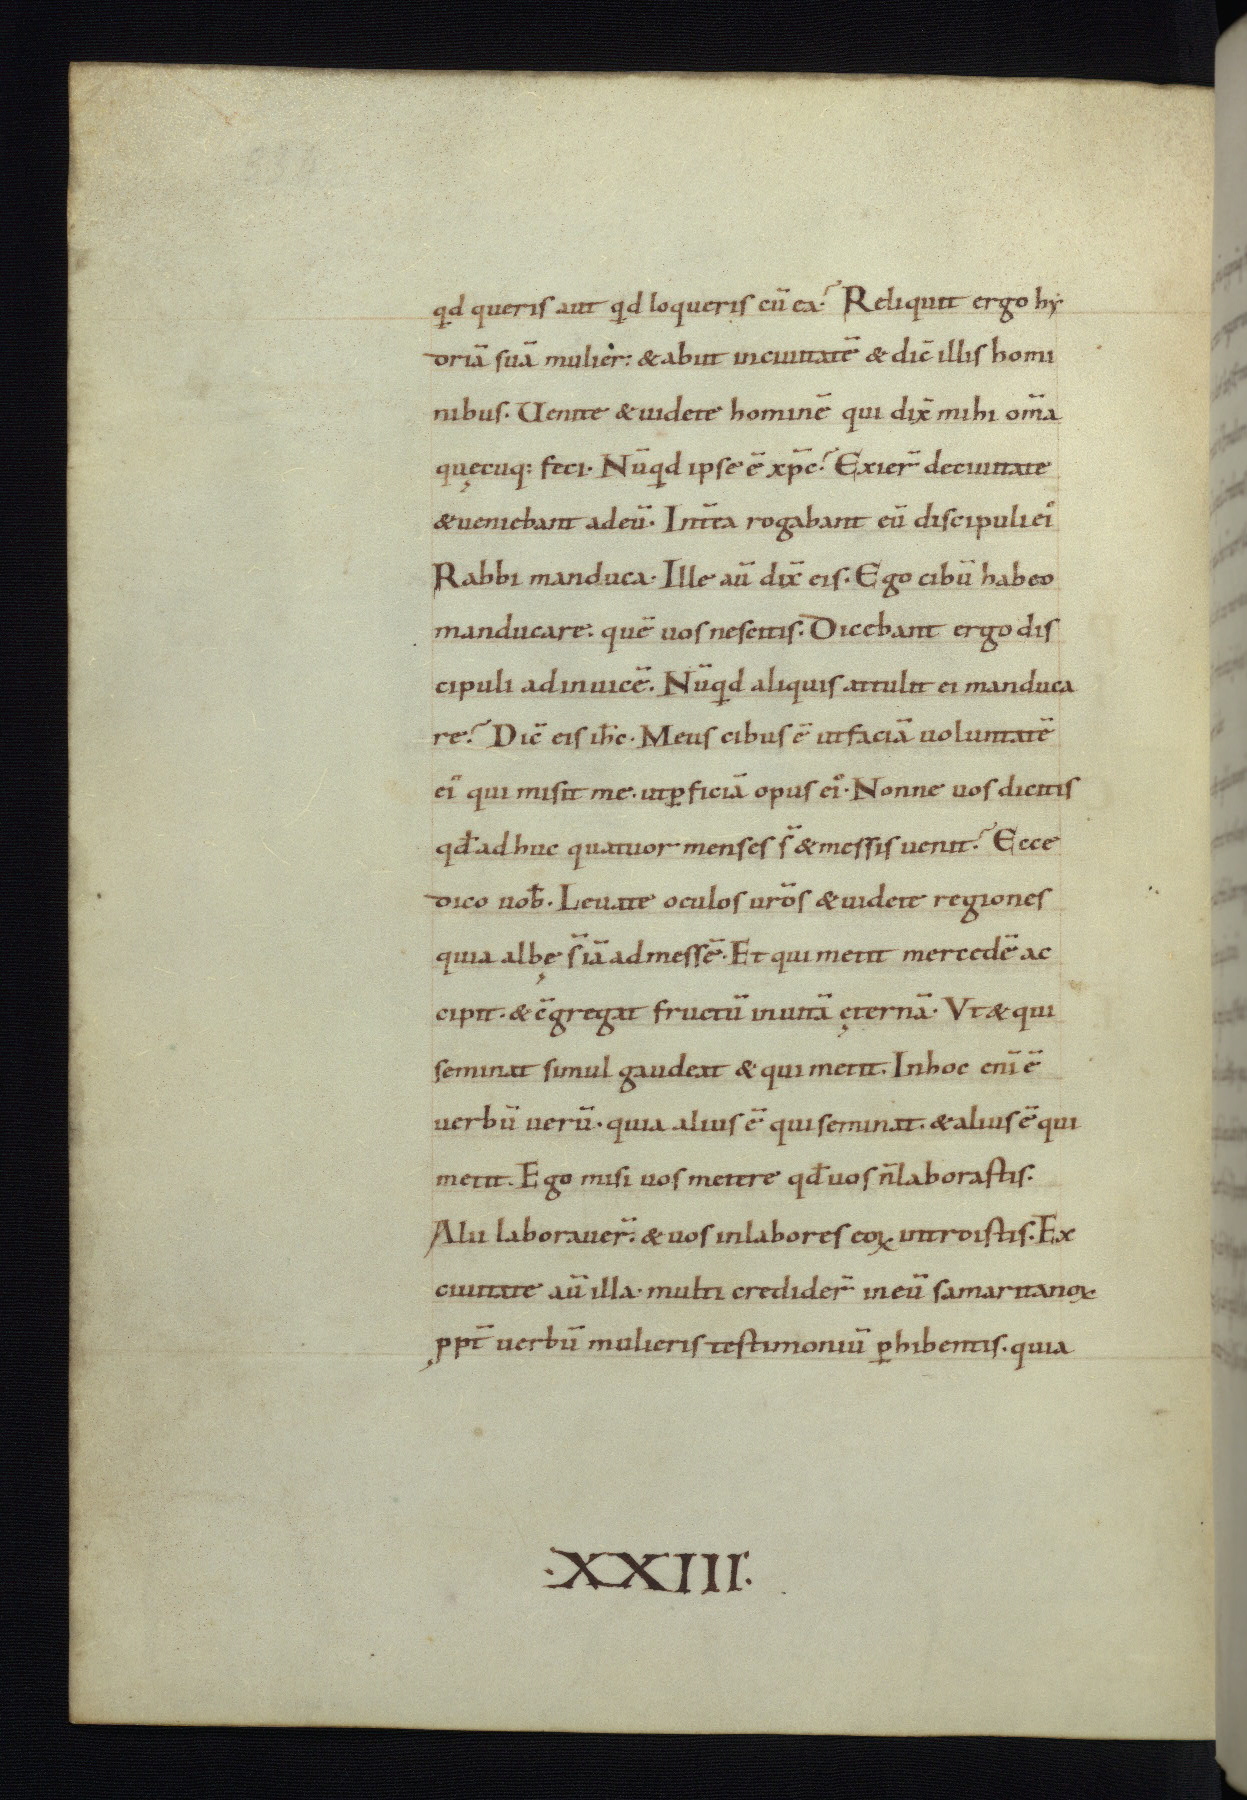 qd queris aut qd loqueris cū ea? Reliquit ergo hy
driā suā mulier: & abiit in ciuitatē & dic̄ illis homi
nibus. Uenite & uidete hominē qui dix̄ mihi om̄a
quęcuq; feci. Nūqd ipse ē xp̄c? Exier̄ de ciuitate
& ueniebant ad eū. Int̄ea rogabant eū discipuli ei᾿
Rabbi manduca. Ille aū dix̄ eis. Ego cibū habeo
manducare. quē uos nescitis. Dicebant ergo dis
cipuli ad inuicē. Nūqd aliquis attulit ei manduca
re? Dic̄ eis ih̄c. Meus cibus ē ut faciā uoluntatē
ei᾿ qui misit me. ut ꝑficiā opus ei᾿. Nonne uos dicitis
qđ adhuc quatuor menses s̄ & messis uenit? Ecce
dico uob̄. Leuate oculos ur̄os & uidete regiones
quia albę s̄ iā ad messē. Et qui metit mercedē ac
cipit. & c̄gregat fructū in uitā ęternā. Vt & qui
seminat simul gaudeat & qui metit. In hoc eni̅ ē
uerbū uerū. quia alius ē qui seminat. & alius ē qui
metit. Ego misi uos metere qđ uos n̄ laborastis.
Alii laborauer̄. & uos in labores eoꝝ introistis. Ex
ciuitate aū illa. multi credider̄ in eū samaritanoꝝ
ꝓpt̄ uerbū mulieris testimoniū ꝑhibentis. quia
·XXIII·